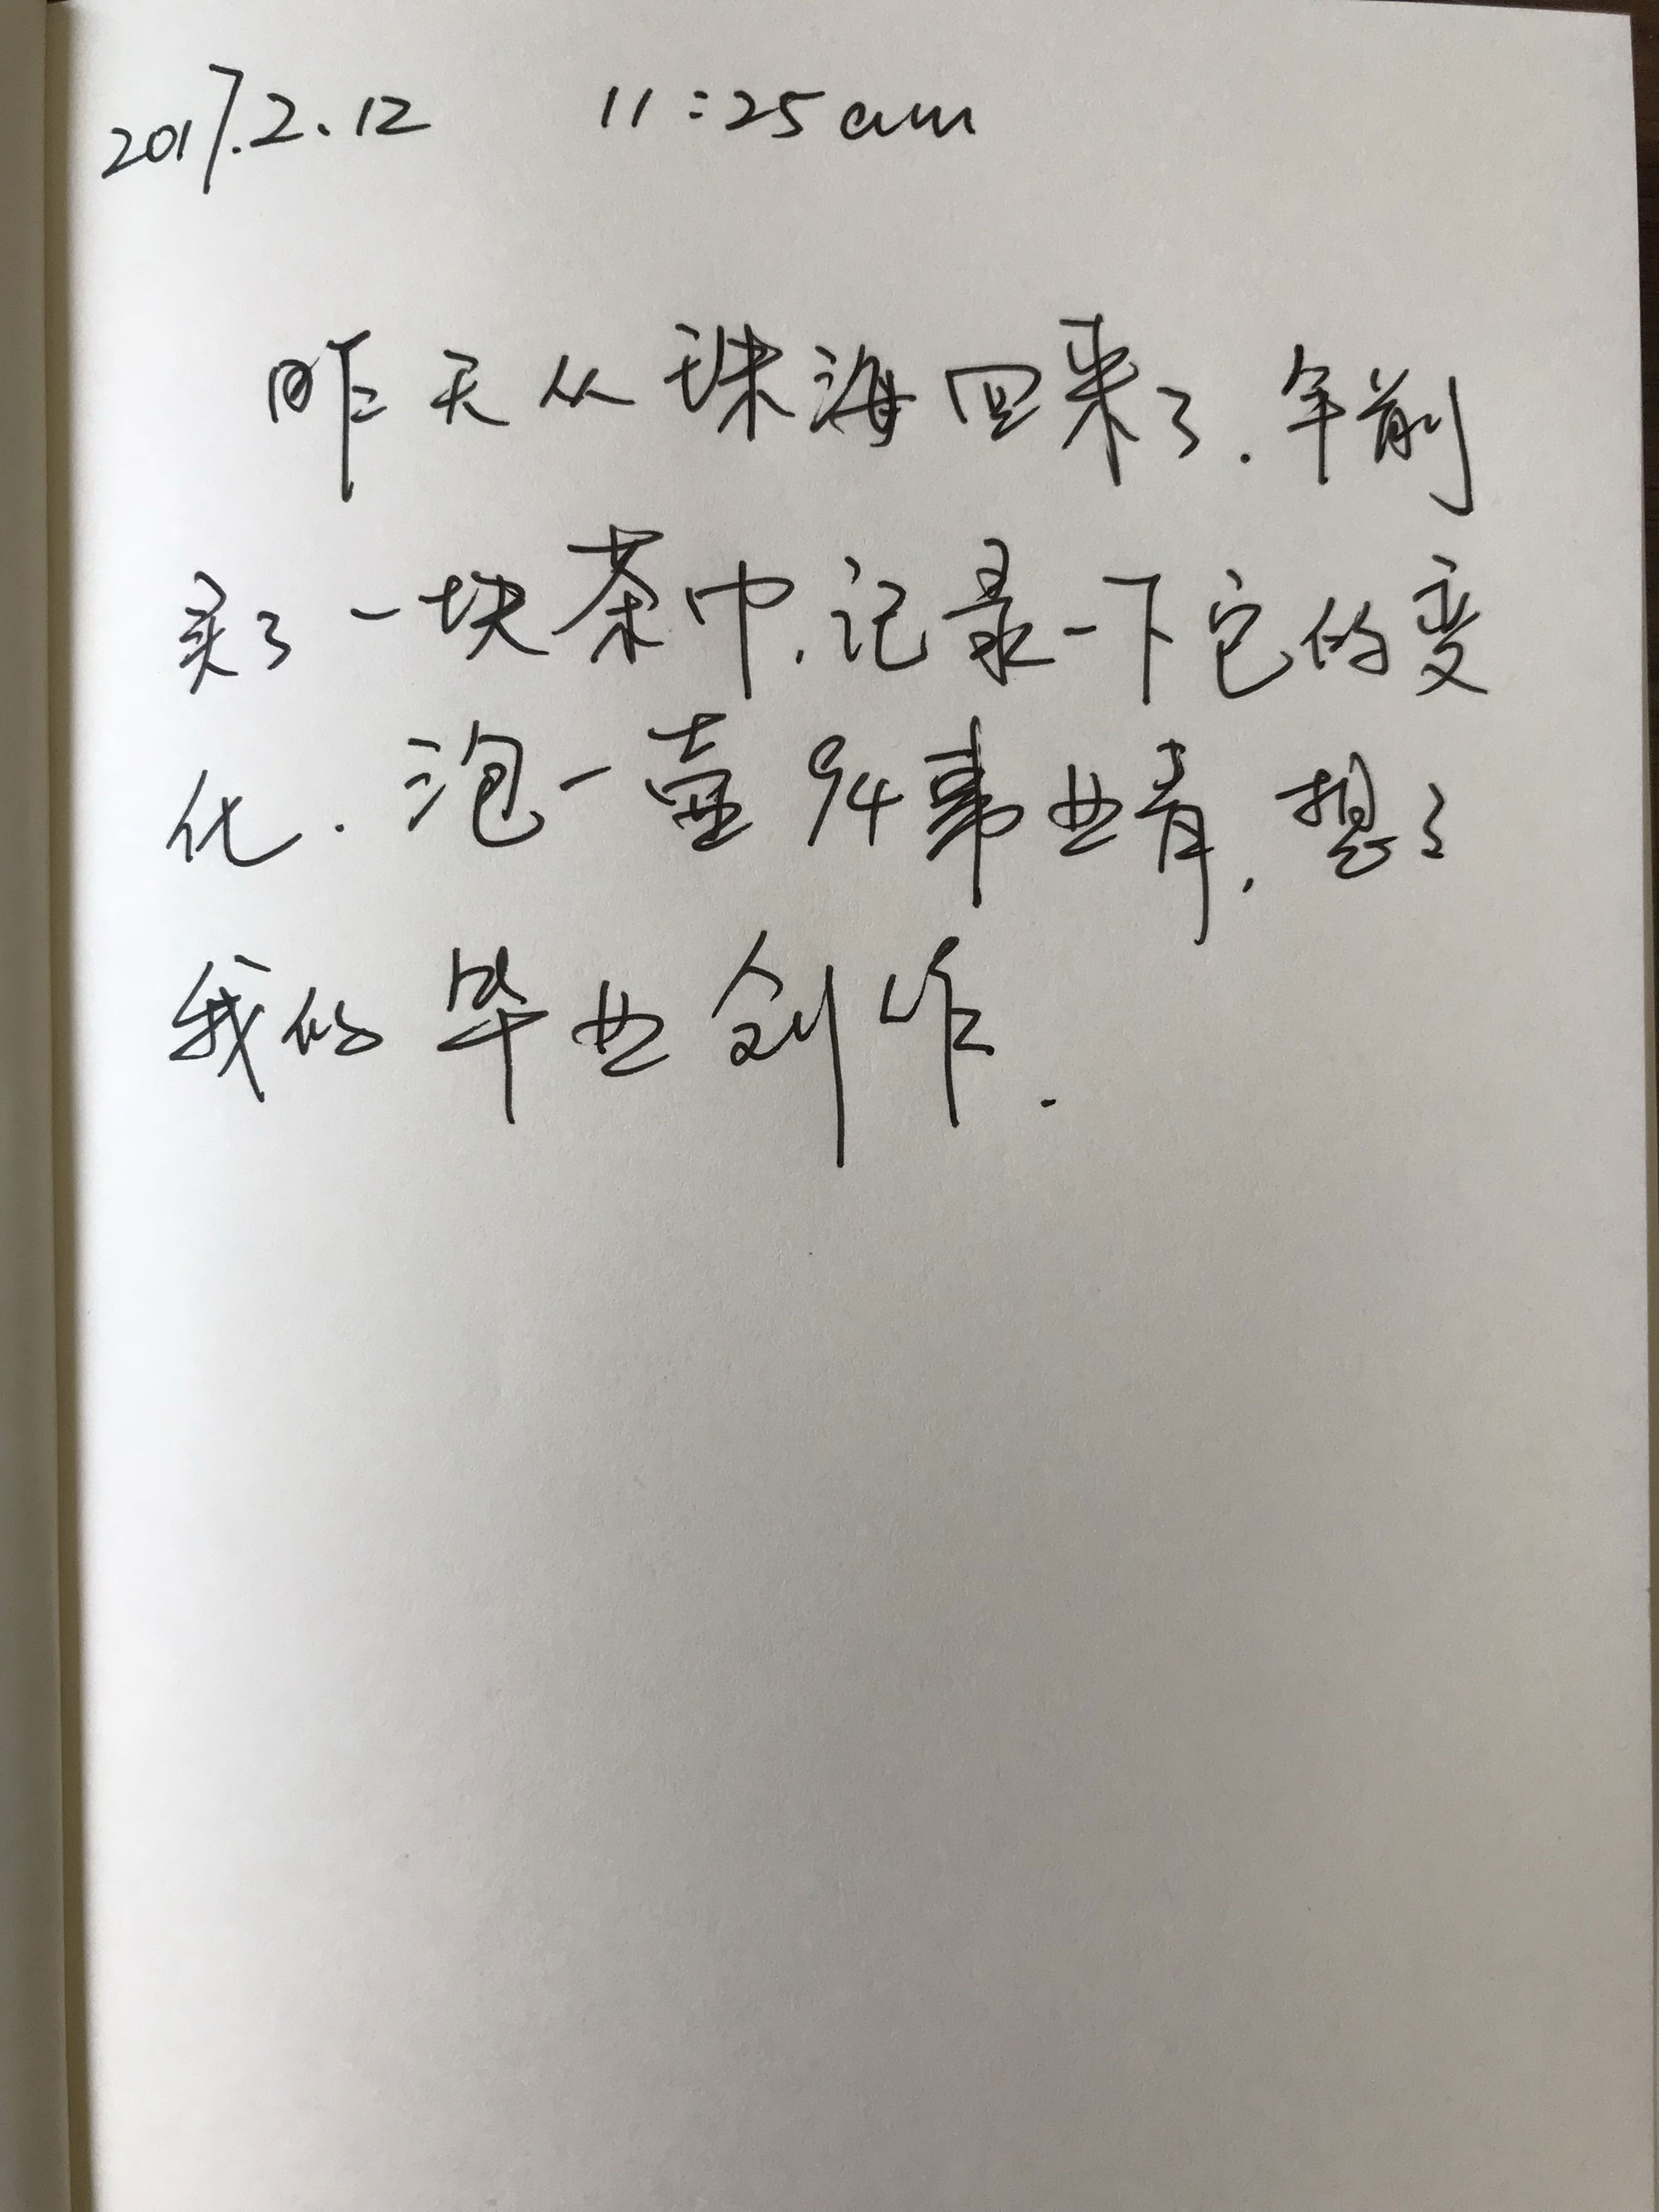 2017.2.12 11:25am
昨天从珠海回来了.年前
买了一块茶巾.记录一下它的变
化.泡一壶94事业青.想了
我的毕业创作.